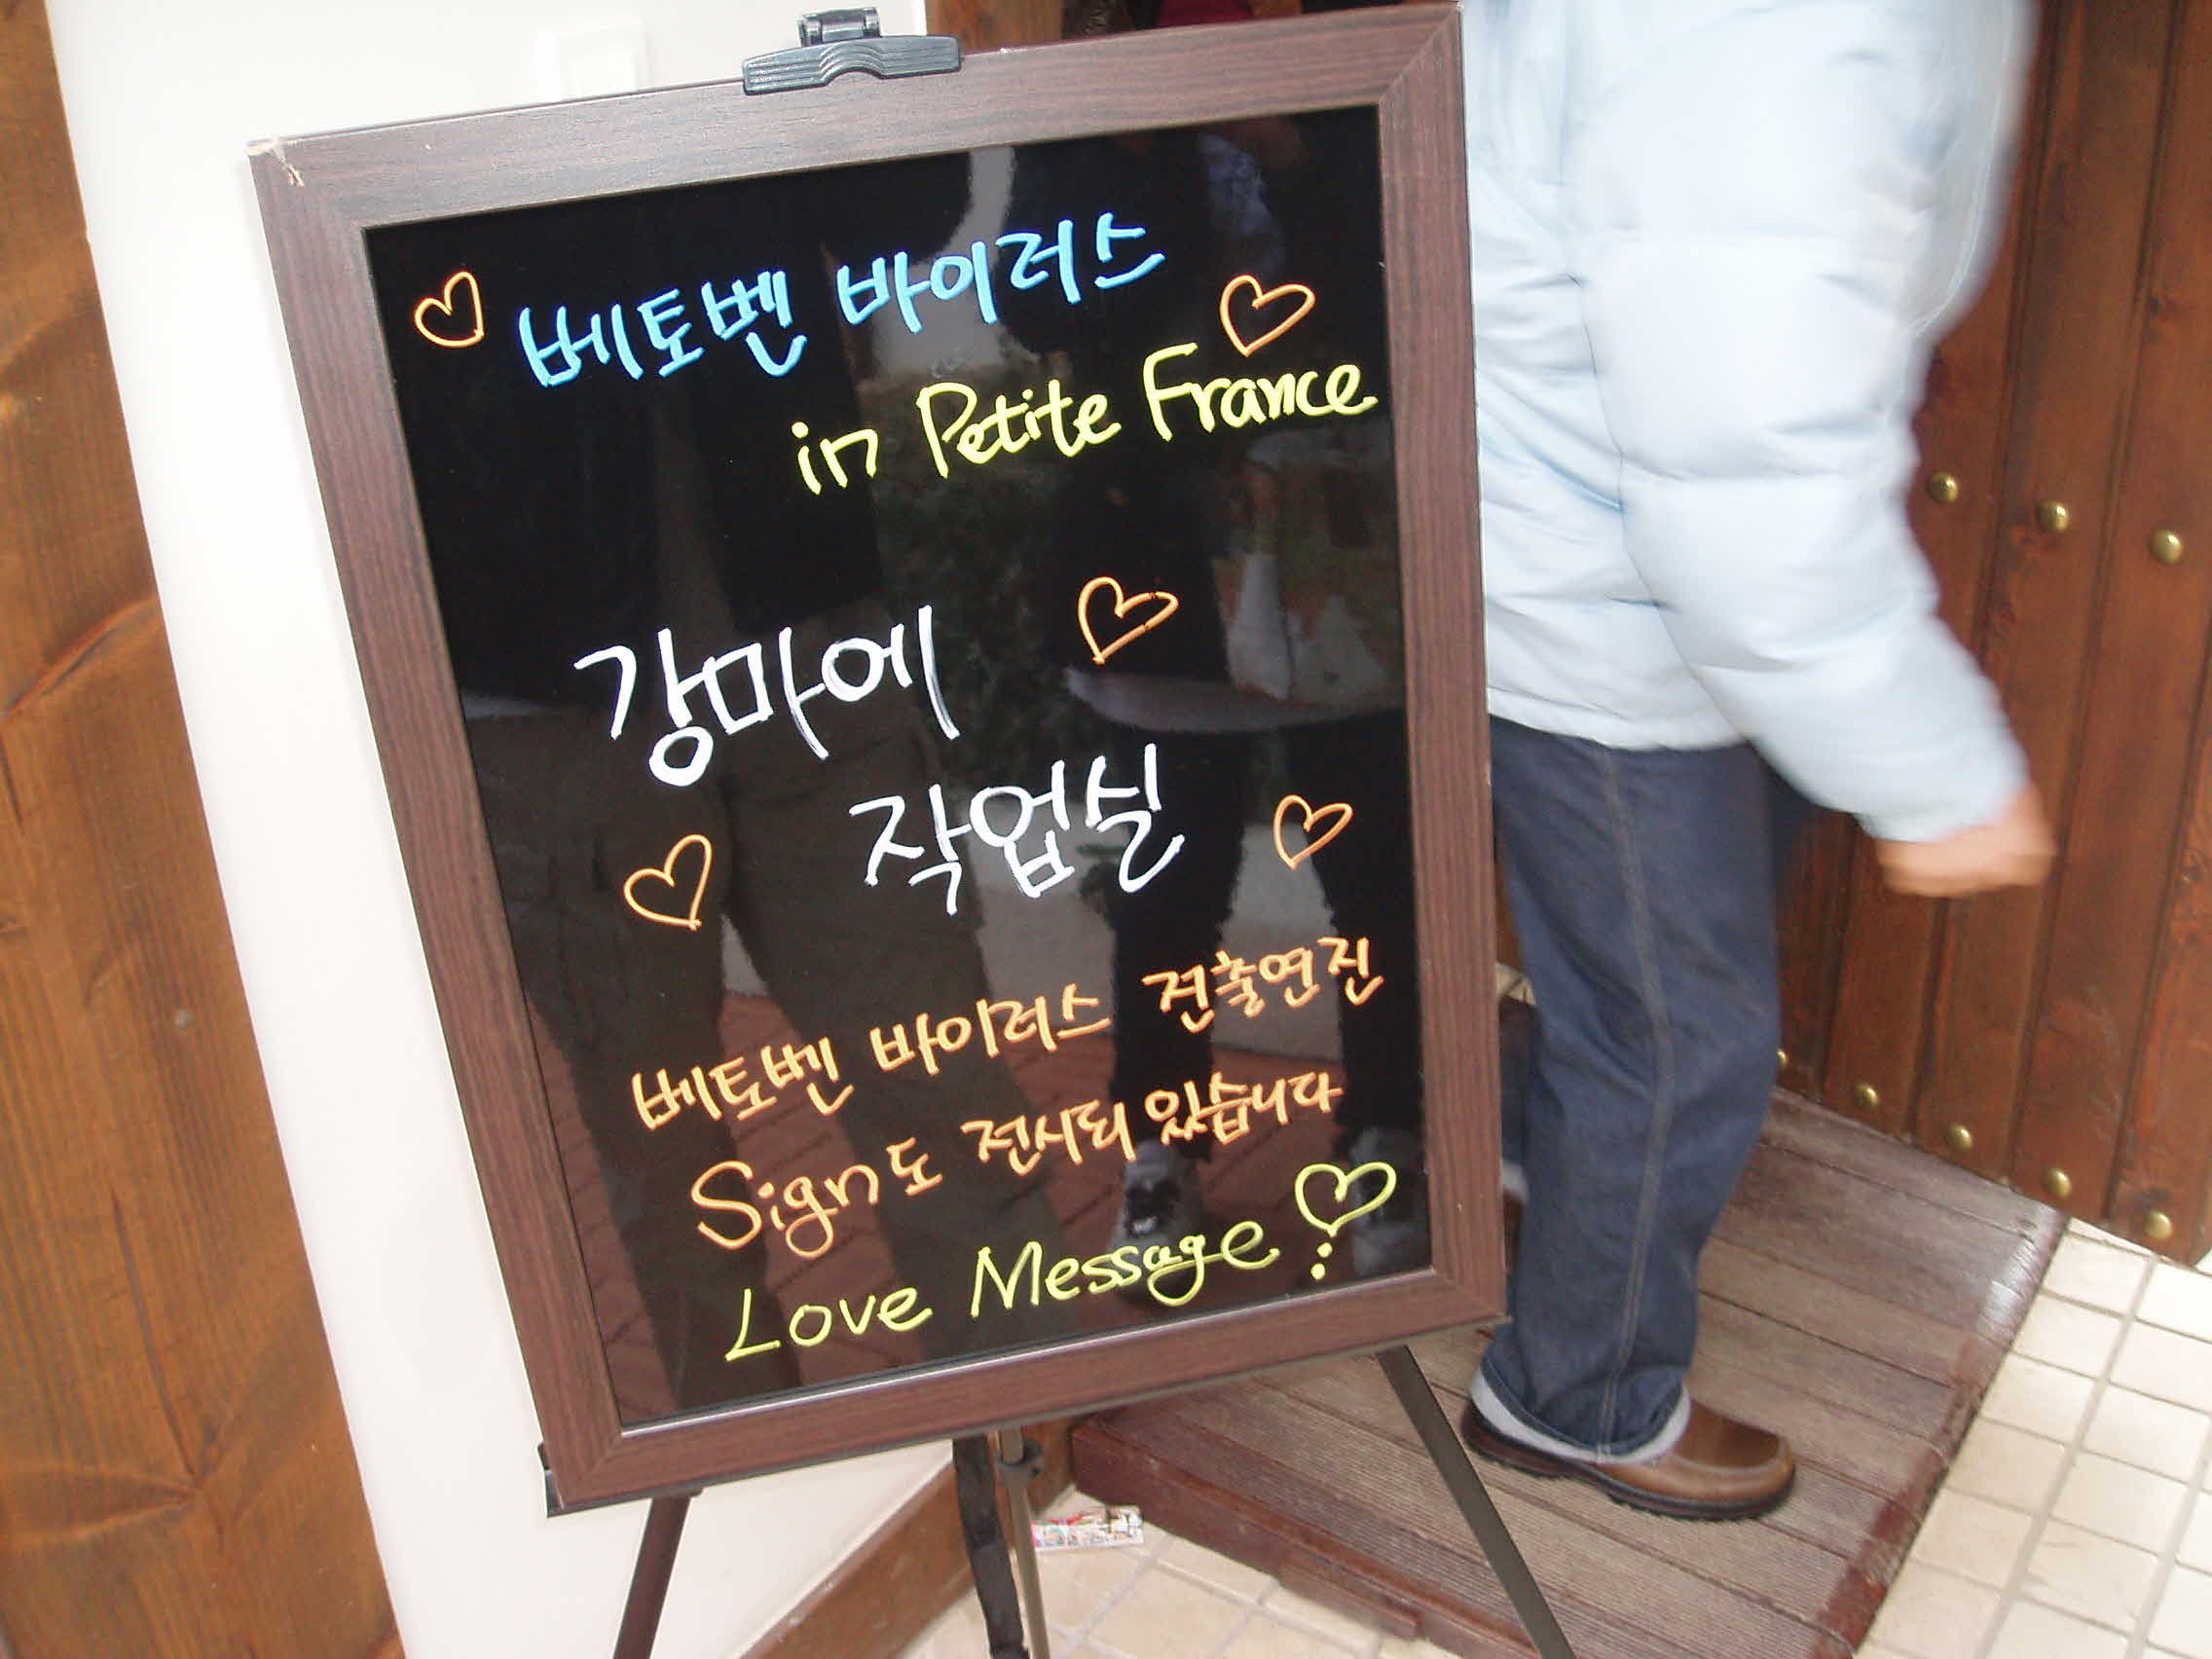 베토벤 바이러스
in Petite France
강마에
작업실
베토벤 바이러스 전출연진
Sign도 전시되 있습니다
Love Message